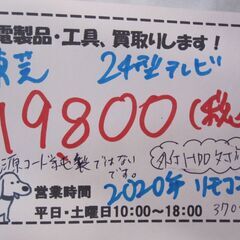 電製品・工具、買取りします！
東芝 24型テレビ
19800(税
源コード
ではない
です。
外付HDD対応
営業時間 2020年 リモコン
平日・土曜日10:00～18:00 370